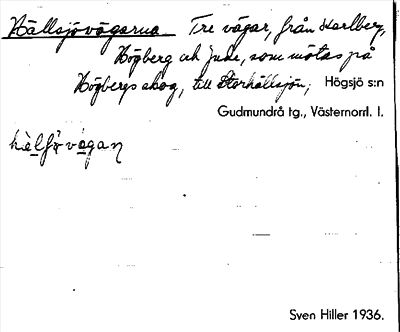 Hällsjövägarna Tre vägar, från Karlberg,
Högberg och Jude, som mötas på
Högbergs skog, till Storhällsjön, Högsjö s:n
Gudmundrå tg., Västernorrl. l.
Sven Hiller 1936.